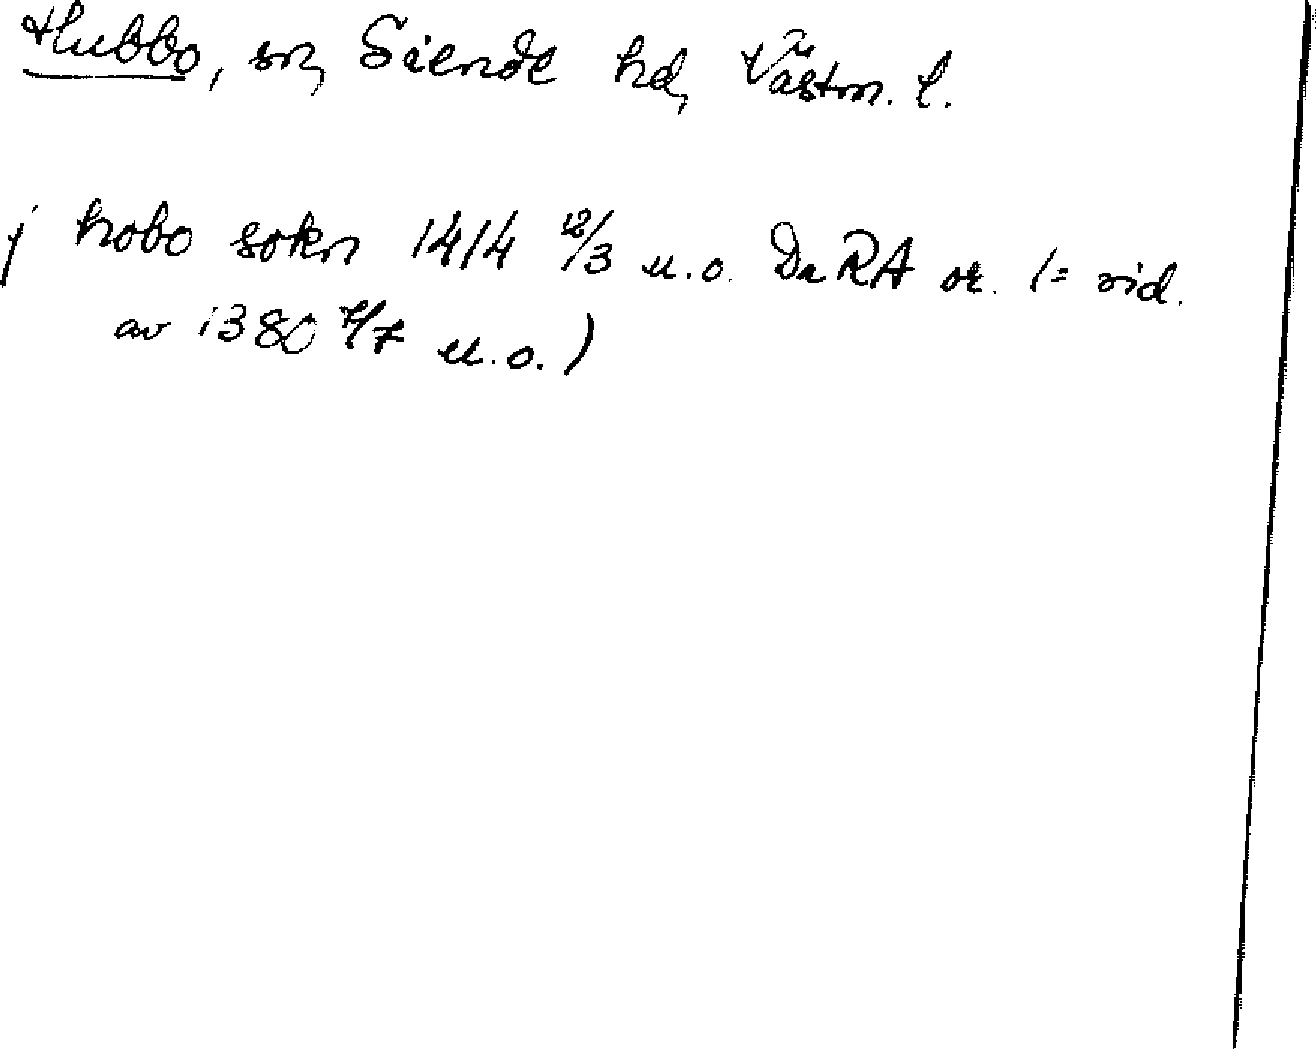 Hubbo, sn, Siende hd, Västm. l.
j hobo sokn 1414 12/3 u.o. Da RA or. (= vid.
av 1380 7/7 u.o.)